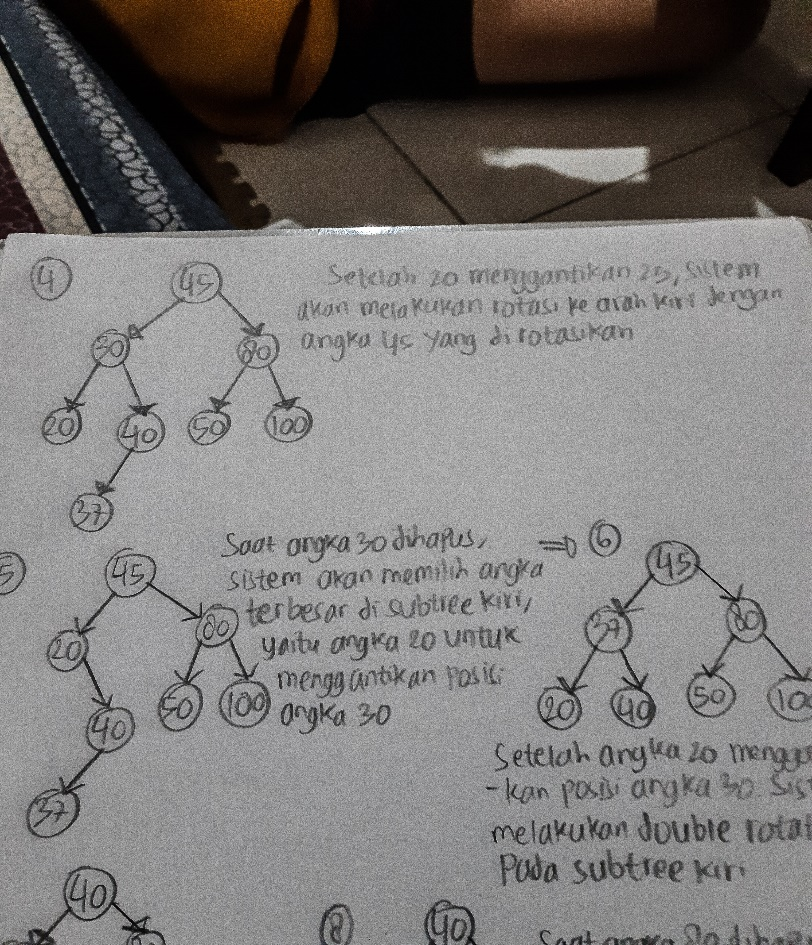 4
45
30 80
20 40 50 100
37
Setelah 20 menggantikan 25, sistem
akan melakukan rotasi ke arah kiri dengan
angka 45 yang di rotasikan
5
45
20 80
40 50 100
37
Saat angka 30 dihapus,
sistem akan memilih angka
terbesar di subtree kiri,
yaitu angka 20 untuk
menggantikan posisi
angka 30
⇒ 6
45
37 80
20 40 50 100
Setelah angka 20 mengga
-kan posisi angka 30. Sis
melakukan double rotat
Pada subtree kiri
40
8
40
Saat angka 80 dihap